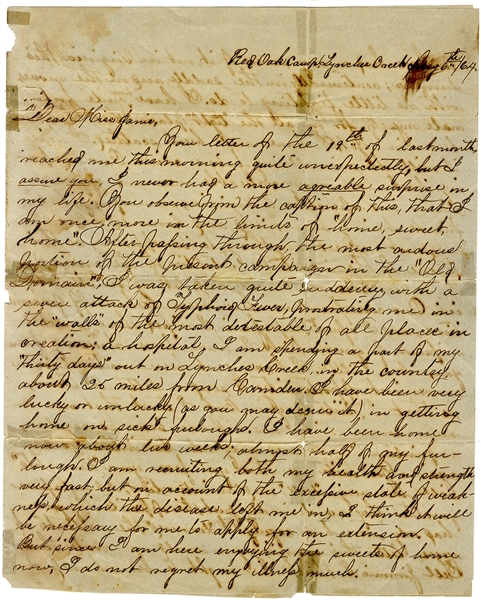 Red Oak Camp, Lynches Creek, Aug 6th/64.
Dear Miss Janie,
Your letter of the 19th of last month
reached me this morning quite unexpectedly, but I
assure you I never had a more agreable surprise in
my life. You observe from the caption of this, that I
am once more in the limits of "home, sweet
home". After passing through the most arduous
portion of the present campaign in the "Old
Domain", I was taken quite suddenly with a
severe attack of Typhoid Fever, prostrating me in
the "walls" of the most detestable of all places in
creation; a hospital. I am spending a part of my
"thirty days" out on Lynches Creek in the country
about 25 miles from Camden. I have been very
lucky or unlucky (as you may deem it) in getting
home on sick furloughs. I have been home
now about two weeks; almost half of my fur-
lough. I am recruiting both my health and strength
very fast, but on account of the excessive state of weak-
ness which the disease left me in, I think it will
be necessary for me to apply for an extension.
But since I am here enjoying the sweets of home
now, I do not regret my illness much.